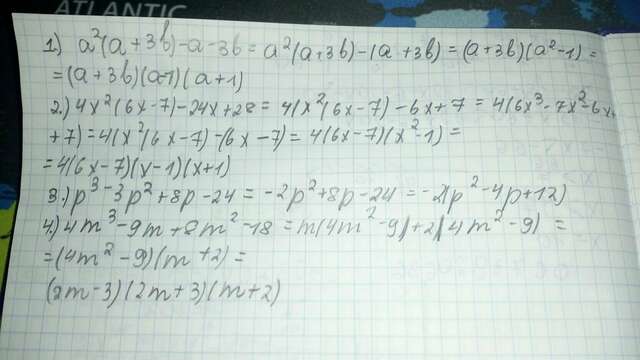 ATLANTIC
1.) a²(a+3b)-a-3b = a²(a+3b)-(a+3b) = (a+3b)(a²-1) =
= (a+3b)(a-1)(a+1)
2.) 4x²(6x-7)-24x+28 = 4(x²(6x-7)-6x+7 = 4(6x³-7x²-6x+
+7) = 4(x²(6x-7)-(6x-7) = 4(6x-7)(x²-1) =
= 4(6x-7)(x-1)(x+1)
3.) p³-3p²+8p-24 = -2p²+8p-24 = -2(p²-4p+12)
4.) 4m³-9m+8m²-18 = m(4m²-9)+2(4m²-9) =
= (4m²-9)(m+2) =
(2m-3)(2m+3)(m+2)